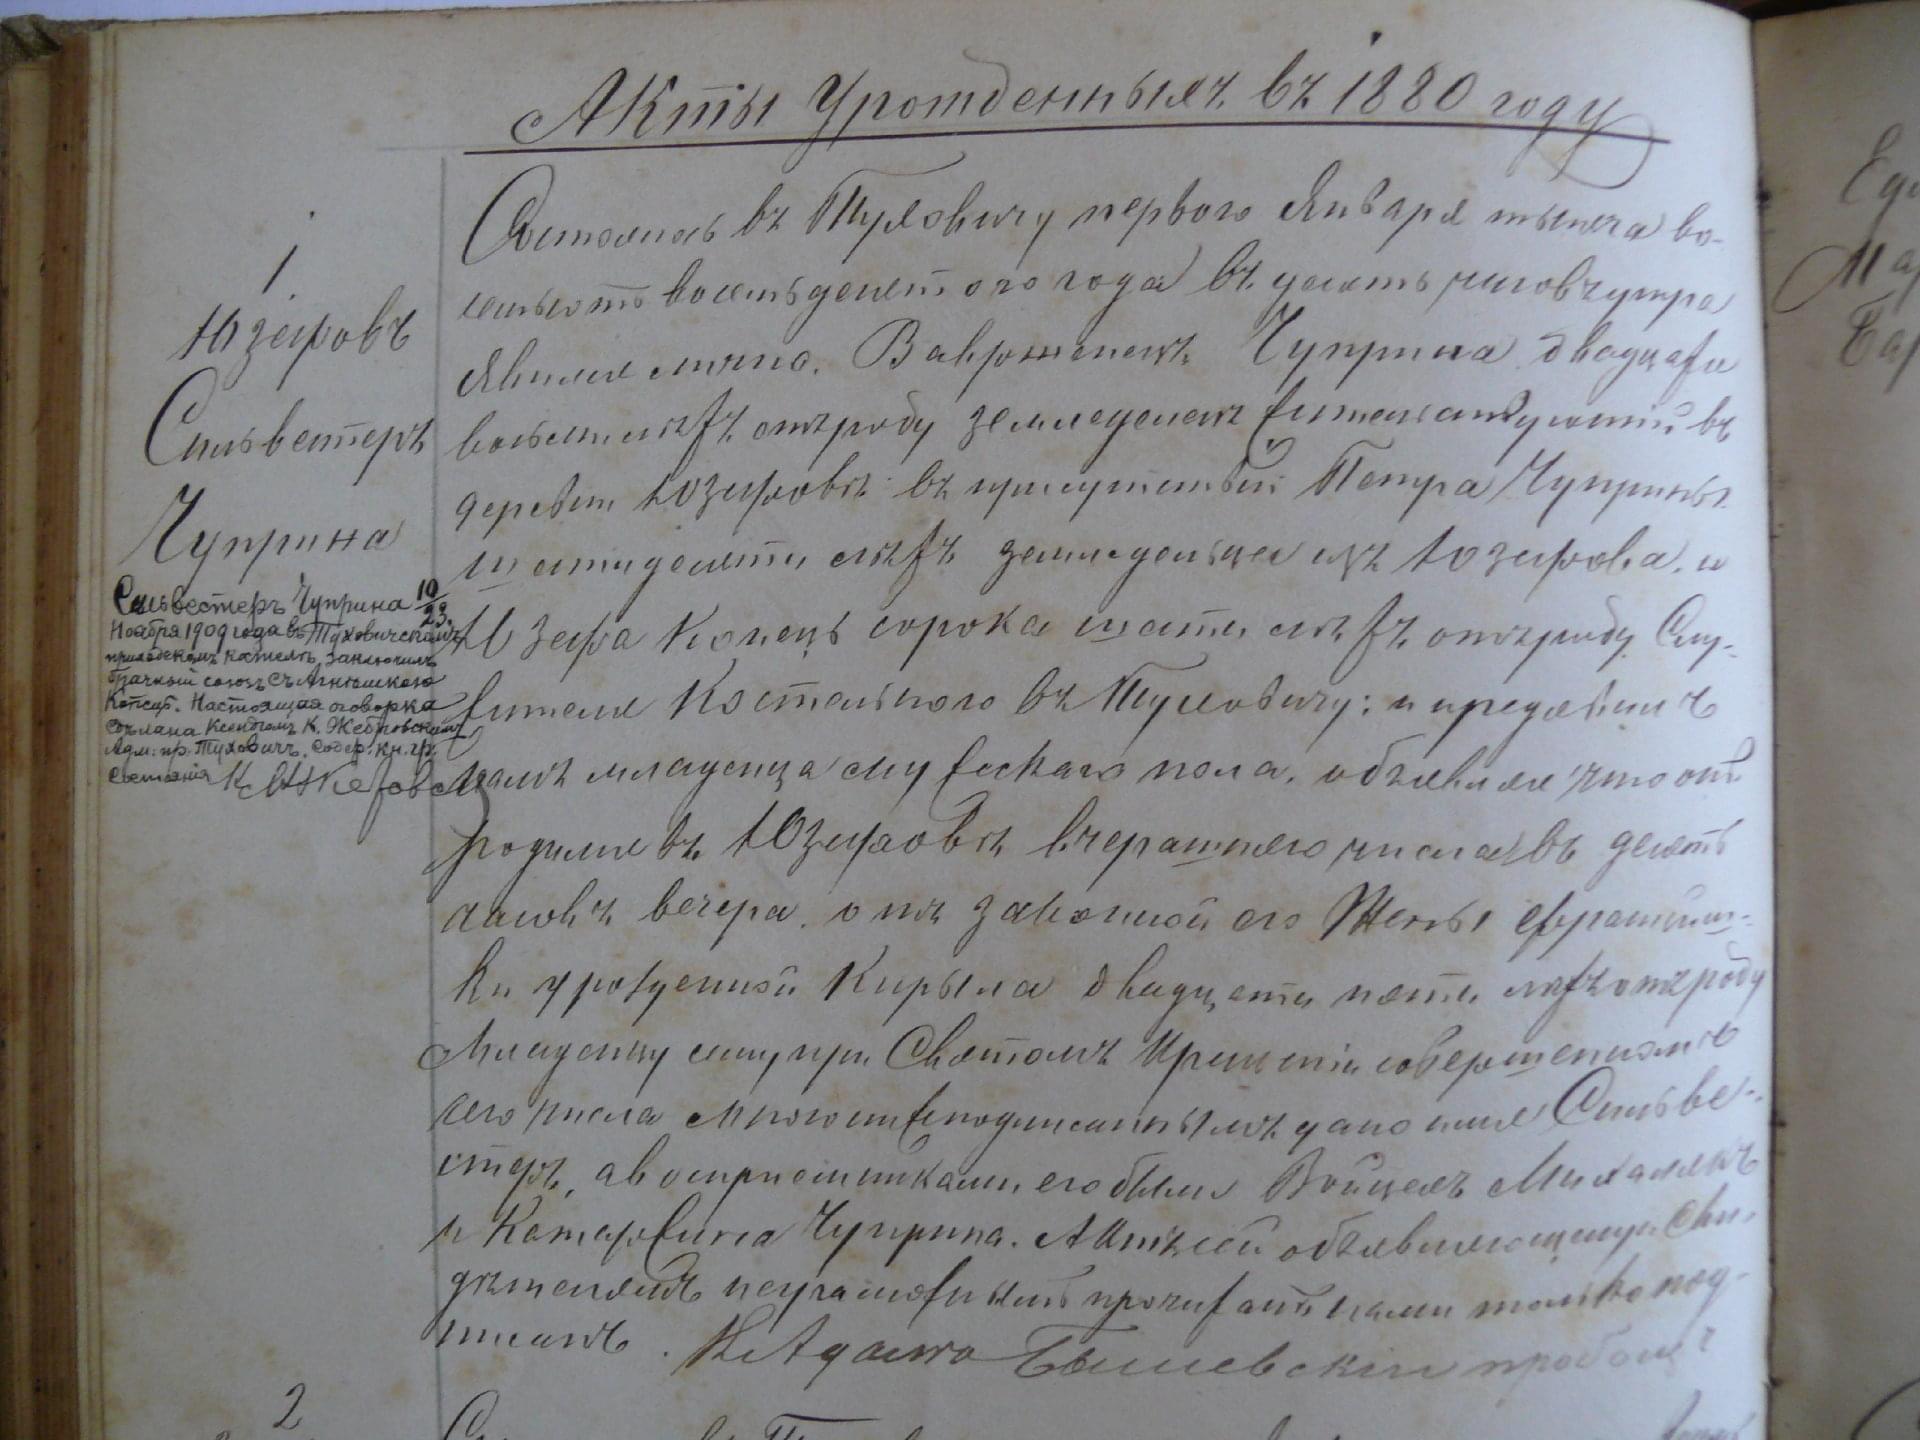 Акты Урожденныхъ въ 1880 году
1
Юзефовъ
Сильвестеръ
Чуприна
Сильвестеръ Чуприна 10/23
Ноября 1909 года въ Туховичскомъ
приходскомъ костелѣ, заключилъ
брачный союзъ съ Агнюшкою
Настоящая оговорка
сдѣлана Ксендзомъ К. Жебровскимъ
Адм: пр. Туховичъ. Содер. кн. гр.
состоянія
Состоялось въ Туховичу перваго Января тысяча во-
семьсотъ восемьдесятого года въ десять часовъ утра
Явился лично. Вавроженецъ Чуприна двадцати
восьми лѣтъ отъ роду земледелецъ жительствующій въ
деревни Юзефовѣ въ присутствіи Петра Чуприны
шестидесяти лѣтъ земледельца изъ Юзефова. и
Юзефа Конецъ сорока шести лѣтъ отъ роду Слу-
жителя Костельного въ Туховичу: и предявилъ
намъ младенца мужескаго пола, объявляя что онъ
родился въ Юзефовѣ вчерашнего числа въ десять
часовъ вечера. отъ законной его Жены Франциш-
ки урожденной Кирыла двадцати пяти лѣтъ отъ роду
Младенцу сему при Святомъ Крещеніи совершенномъ
сего числа мною нижеподписаннымъ дано имя Сильве-
стеръ, а воспріемниками его были Войцехъ Михалякъ
и Катаржина Чуприна. Актъ сей объявляющему и Сви-
дѣтелямъ неграмотнымъ прочитанъ нами только под-
писанъ. К. Адамъ пробощъ
2